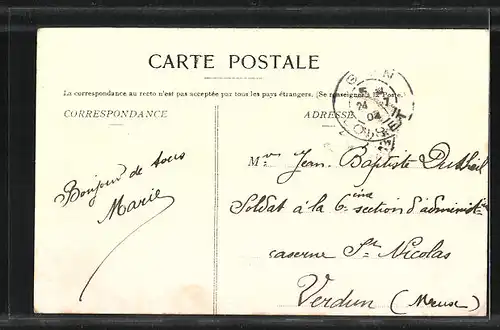 CARTE POSTALE
La correspondance au recto n'est pas acceptée par tous les pays étrangers. (Se renseigner à la Poste.)
CORRESPONDANCE
ADRESSE
24
Bonjour de tous
Marie
Mr Jean Baptiste Dutheil
Soldat à la 6eme section d'administ
caserne St Nicolas
Verdun (Meuse)